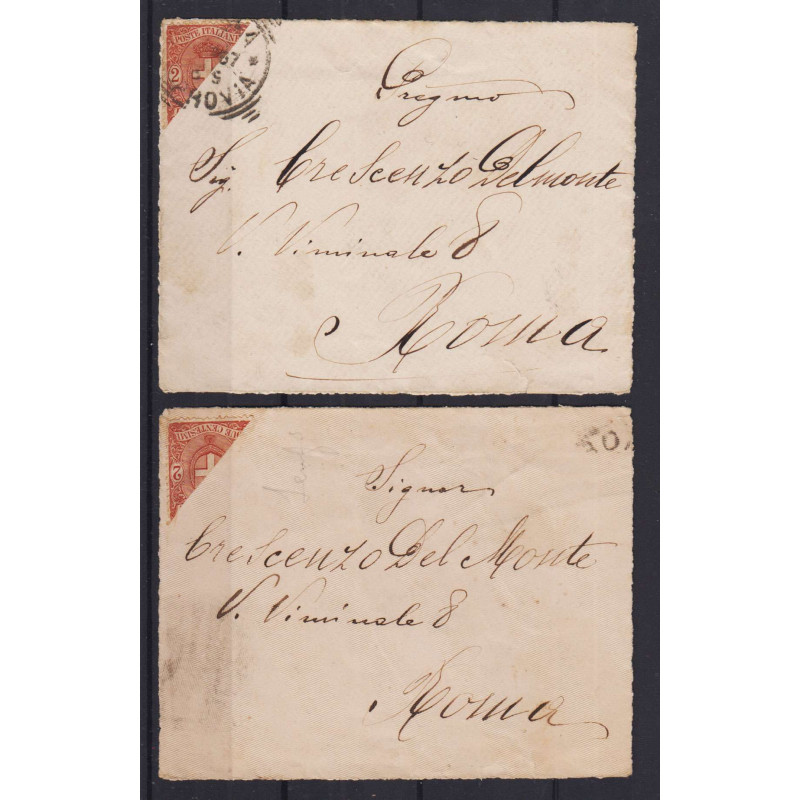 POSTE ITALIANE
2
5
97
ROVIA
Pregmo
Sig. Crescenzo Delmonte
V. Viminale 8
Roma
UE CENTESIMI
2
Signor
Crescenzo Del Monte
V. Viminale 8
Roma